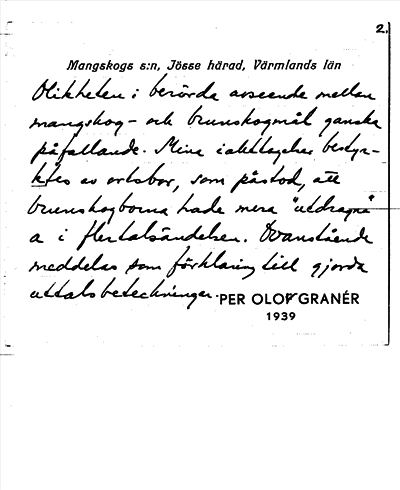 2.
Mangskogs s:n, Jösse härad, Värmlands län
Olikheten i berörda avseende mellan
mangskog- och brunskogmål ganska
påfallande. Mina iakttagelser bestyr-
ktes av ortsbor, som påstod, att
brunskogborna hade mera "utdragna"
a i flertalsändelsen. Ovanstående
meddelas som förklaring till gjorda
uttalsbeteckningar.
PER OLOF GRANÉR
1939